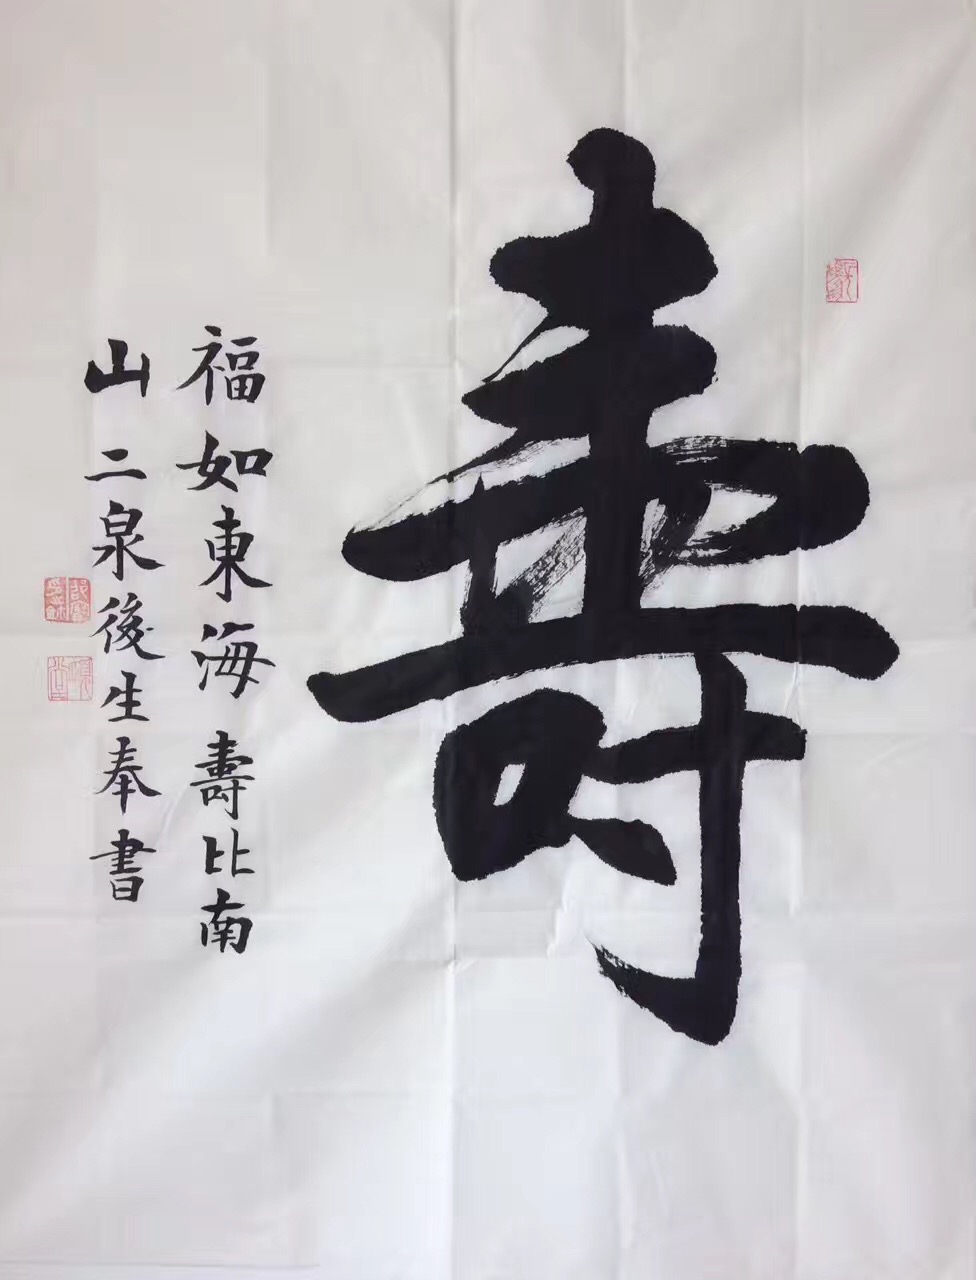 壽
福如東海壽比南
山二泉後生奉書